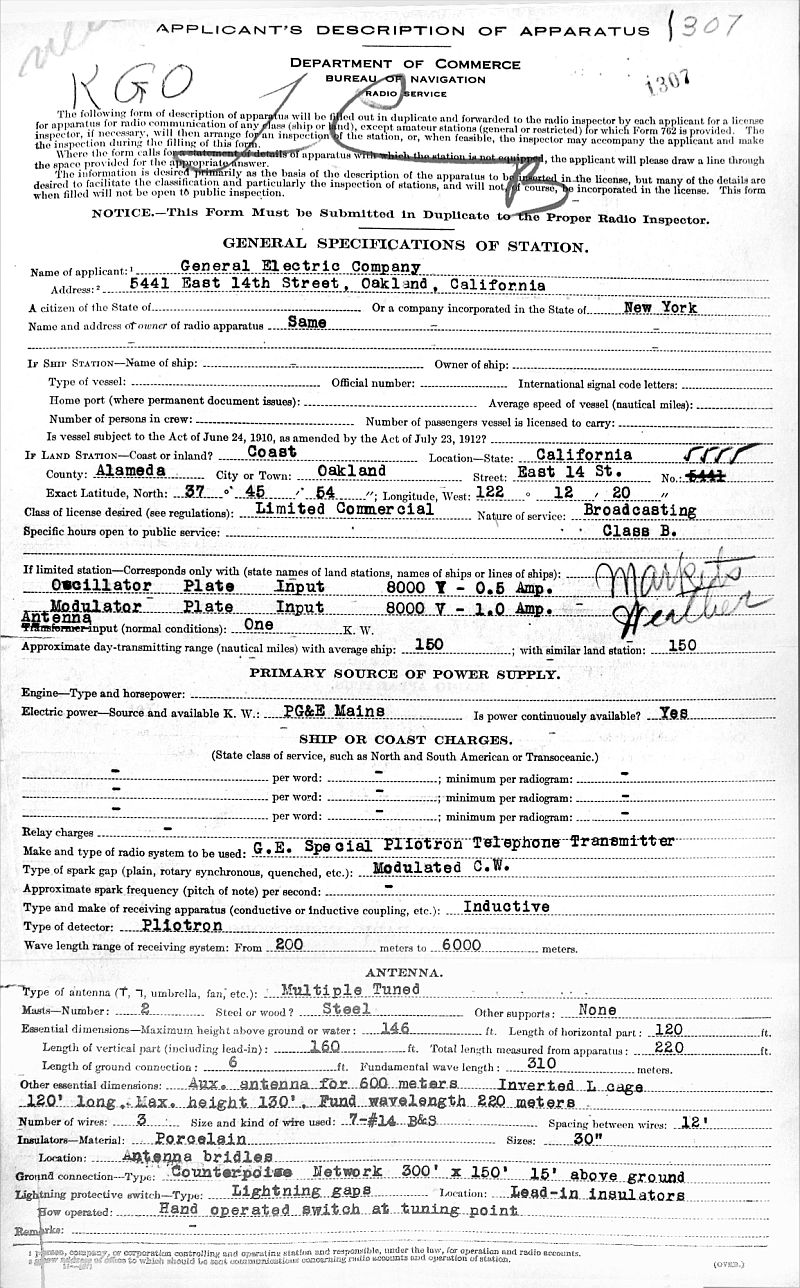 APPLICANT'S DESCRIPTION OF APPARATUS 1307
DEPARTMENT OF COMMERCE
BUREAU OF NAVIGATION
RADIO SERVICE
1307
KGO
The following form of description of apparatus will be filled out in duplicate and forwarded to the radio inspector by each applicant for a license
for apparatus for radio communication of any class (ship or land), except amateur stations (general or restricted) for which Form 762 is provided. The
inspector, if necessary, will then arrange for an inspection of the station, or, when feasible, the inspector may accompany the applicant and make
the inspection during the filling of this form.
Where the form calls for a statement of details of apparatus with which the station is not equipped, the applicant will please draw a line through
the space provided for the appropriate answer.
The information is desired primarily as the basis of the description of the apparatus to be inserted in the license, but many of the details are
desired to facilitate the classification and particularly the inspection of stations, and will not, of course, be incorporated in the license. This form
when filled will not be open to public inspection.
B
NOTICE.—This Form Must be Submitted in Duplicate to the Proper Radio Inspector.
GENERAL SPECIFICATIONS OF STATION.
Name of applicant:¹ General Electric Company
Address:² 5441 East 14th Street, Oakland, California
A citizen of the State of Or a company incorporated in the State of New York
Name and address of owner of radio apparatus Same - -
- - -
IF SHIP STATION—Name of ship: - Owner of ship:
Type of vessel: Official number: International signal code letters:
Home port (where permanent document issues): Average speed of vessel (nautical miles):
Number of persons in crew: Number of passengers vessel is licensed to carry:
Is vessel subject to the Act of June 24, 1910, as amended by the Act of July 23, 1912?
IF LAND STATION—Coast or inland? Coast Location—State: California 5555
County: Alameda City or Town: Oakland Street: East 14 St. No.: 5441
Exact Latitude, North: 37 ° 45 ′ 54 ″; Longitude, West: 122 ° 12 ′ 20 ″
Class of license desired (see regulations): Limited Commercial Nature of service: Broadcasting
Specific hours open to public service: Class B.
If limited station—Corresponds only with (state names of land stations, names of ships or lines of ships): Markets
Oscillator Plate Input 8000 V - 0.5 Amp.
Modulator Plate Input 8000 V - 1.0 Amp. Weather
Antenna
Transformer input (normal conditions): One K. W.
Approximate day-transmitting range (nautical miles) with average ship: 150 ; with similar land station: 150
PRIMARY SOURCE OF POWER SUPPLY.
Engine—Type and horsepower:
Electric power—Source and available K. W.: PG&E Mains Is power continuously available? Yes
SHIP OR COAST CHARGES.
(State class of service, such as North and South American or Transoceanic.)
- per word: - ; minimum per radiogram: -
- per word: - ; minimum per radiogram: -
- per word: - ; minimum per radiogram: -
Relay charges -
Make and type of radio system to be used: G.E. Special Pliotron Telephone Transmitter
Type of spark gap (plain, rotary synchronous, quenched, etc.): Modulated C.W.
Approximate spark frequency (pitch of note) per second: -
Type and make of receiving apparatus (conductive or inductive coupling, etc.): Inductive
Type of detector: Pliotron
Wave length range of receiving system: From 200 meters to 6000 meters.
ANTENNA.
Type of antenna (T, ┐, umbrella, fan, etc.): Multiple Tuned
Masts—Number: 2 Steel or wood? Steel Other supports: None
Essential dimensions—Maximum height above ground or water: 146 ft. Length of horizontal part: 120 ft.
Length of vertical part (including lead-in): 160 ft. Total length measured from apparatus: 220 ft.
Length of ground connection: 6 ft. Fundamental wave length: 310 meters.
Other essential dimensions: Aux. antenna for 600 meters Inverted L cage
120' long. Max. height 130'. Fund wavelength 220 meters
Number of wires: 3 Size and kind of wire used: 7-#14 B&S Spacing between wires: 12'
Insulators—Material: Porcelain Sizes: 30"
Location: Antenna bridles
Ground connection—Type: Counterpoise Network 300' x 150' 15' above ground
Lightning protective switch—Type: Lightning gaps Location: Lead-in insulators
How operated: Hand operated switch at tuning point
Remarks: -
¹ Person, company, or corporation controlling and operating station and responsible, under the law, for operation and radio accounts.
address of office to which should be sent communications concerning radio accounts and operation of station.
(OVER.)